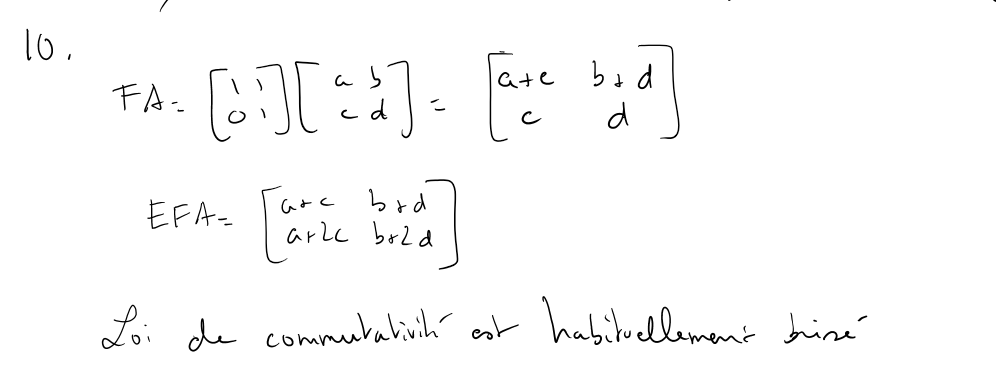 10.
FA = [1 1 0 1] [a b c d] = [a+c b+d c d]
EFA = [a+c b+d a+2c b+2d]
Loi de commutativité est habituellement brisé